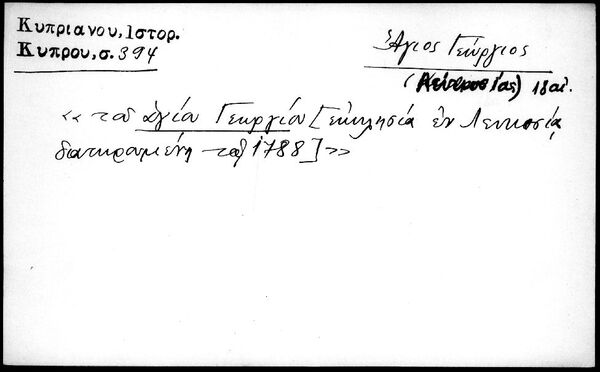 Κυπριανου, Ιστορ.
Κυπρου, σ. 394
Ἅγιος Γεώργιος
(Λευκοσίας) 18 αἰ.
«τοῦ ἁγίου Γεωργίου [ἐκκλησία ἐν Λευκοσίᾳ
1788]»